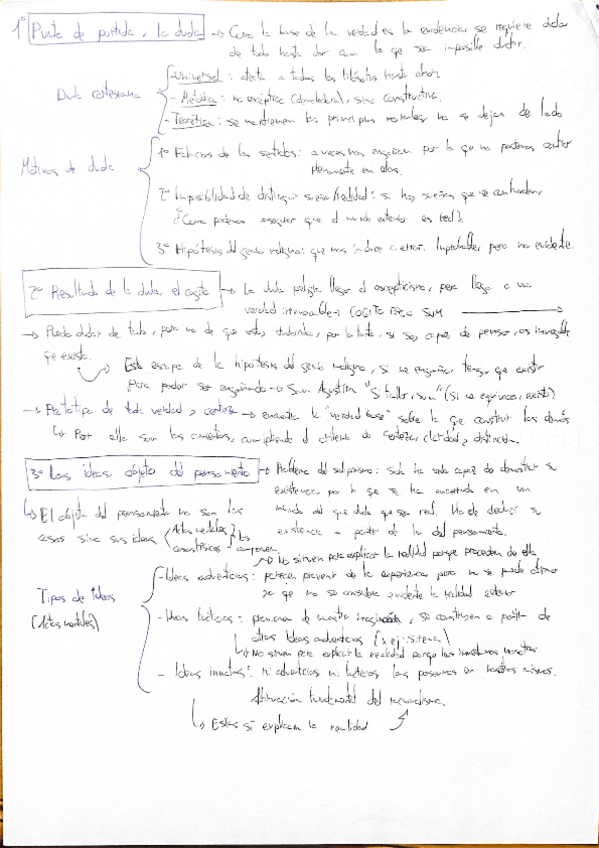 1º Punto de partida, la duda → Como la base de la verdad es la evidencia, se requiere dudar
de todo hasta dar con lo que sea imposible dudar.
Duda cartesiana
- Universal: afecta a todos los filósofos hasta ahora
- Metódica: no escéptica (demoledora), sino constructiva.
- Teorética: se mantienen los principios morales, no se dejan de lado
Motivos de duda
1º Falacias de los sentidos: a veces nos engañan por lo que no podemos confiar
plenamente en ellos.
2º Imposibilidad de distinguir sueño/realidad: si hay sueños que se confunden,
¿Cómo podemos asegurar que el mundo exterior es real?
3º Hipótesis del genio maligno: que nos induce a error. Improbable, pero no evidente.
2º Resultado de la duda, el cogito → La duda podría llegar al escepticismo, pero llega a una
verdad COGITO ERGO SUM
→ Puedo dudar de todo, pero no de que estoy dudando, por lo tanto, si soy capaz de pensar, es innegable
que existo.
Esto escapa de la hipótesis del genio maligno, si me engañan tengo que existir
para poder ser engañado → San Agustín "Si fallor, sum" (Si me equivoco, existo)
→ Prototipo de toda verdad y certeza → encuentra la "verdad base" sobre la que construir las demás
↳ Por ello son los cimientos, cumpliendo el criterio de certeza, claridad y distinción.
3º Las ideas, objeto del pensamiento → Problema del solipsismo: solo ha sido capaz de demostrar su
existencia por lo que se ha encontrado en un
mundo del que duda que sea real. Ha de deducir su
existencia a partir de la del pensamiento.
↳ El objeto del pensamiento no son las
cosas sino sus ideas
Actos mentales
componen
↗ No sirven para explicar la realidad porque proceden de ella
Tipos de Ideas
(Actos mentales)
- Ideas adventicias: parecen provenir de la experiencia, pero no se puede afirmar
ya que no se considera evidente la realidad exterior
- Ideas facticias: provienen de nuestra imaginación, se construyen a partir de
otras ideas adventicias (x ej: sirena)
↳ No sirven para explicar la realidad porque las inventamos nosotros
- Ideas innatas: ni adventicias ni facticias, las poseemos en nosotros mismos.
Afirmación fundamental del racionalismo.
↳ Estas sí explican la realidad